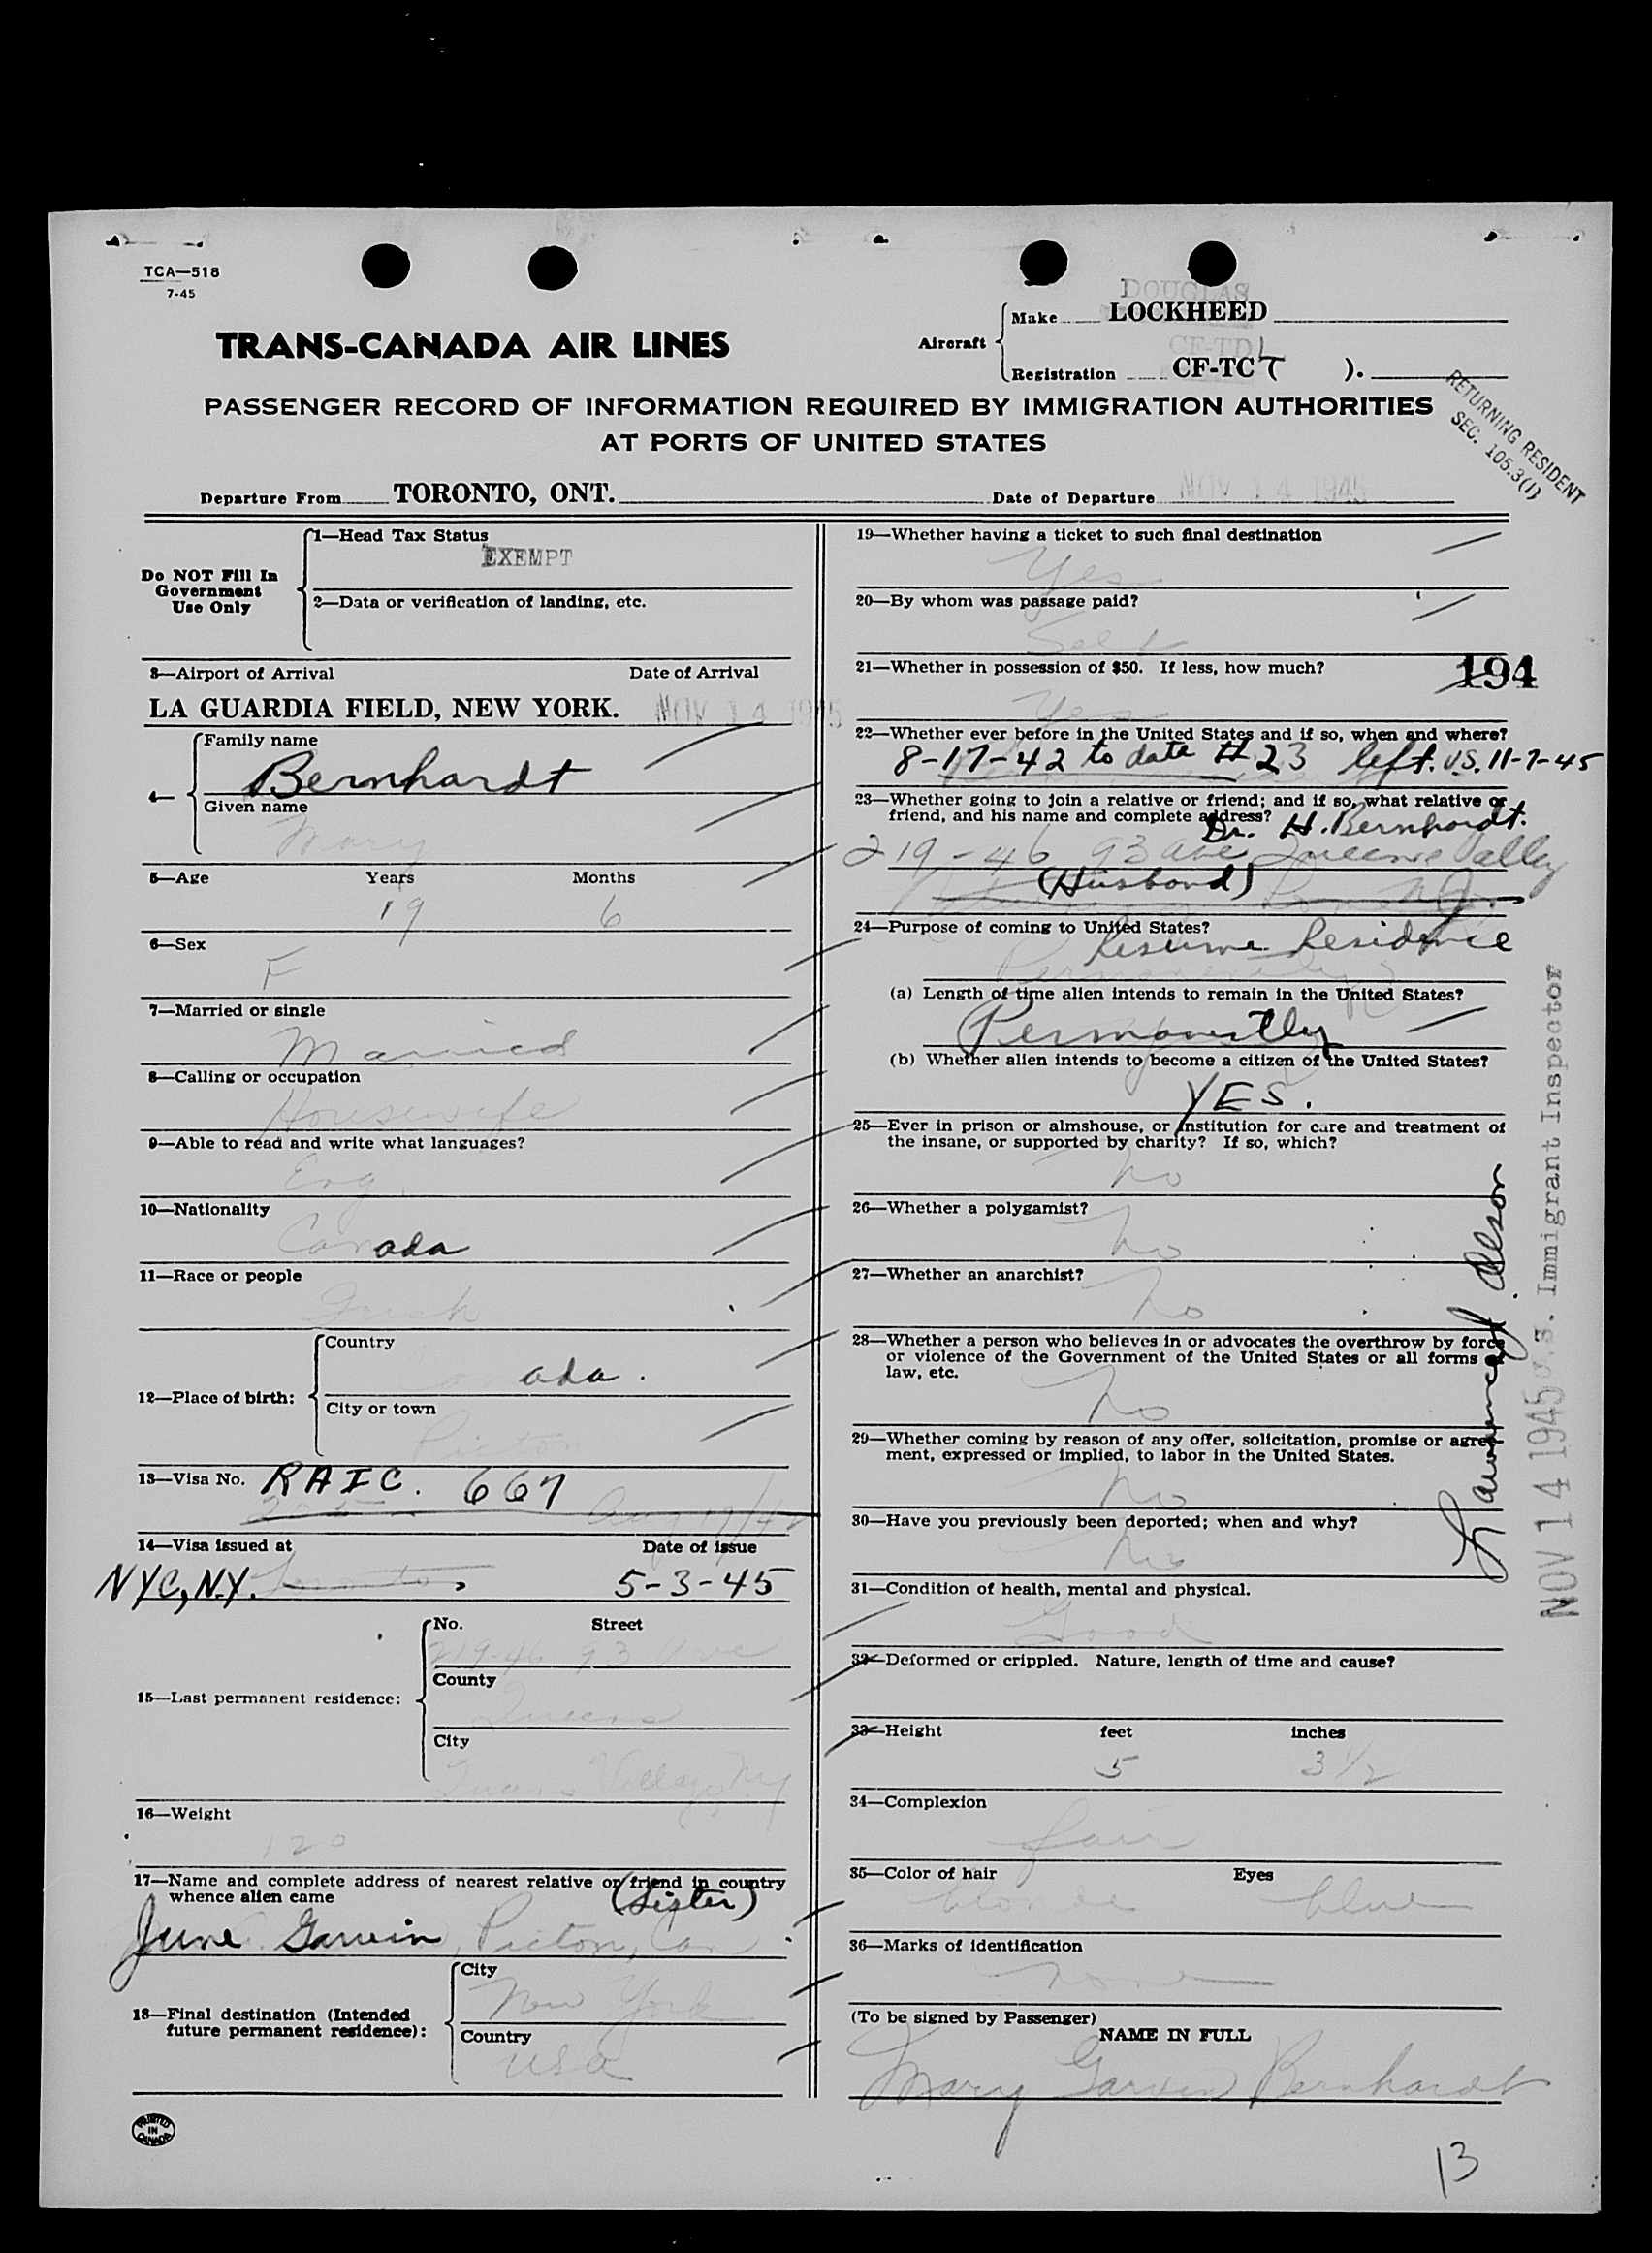 TCA—518
7-45
TRANS-CANADA AIR LINES
Aircraft
DOUGLAS
Make LOCKHEED
CF-TDL
Registration CF-TCT ).
PASSENGER RECORD OF INFORMATION REQUIRED BY IMMIGRATION AUTHORITIES
AT PORTS OF UNITED STATES
RETURNING RESIDENT
SEC. 105.3(1)
Departure From TORONTO, ONT. Date of Departure NOV 14 1945
Do NOT Fill In
Government
Use Only
1—Head Tax Status
EXEMPT
2—Data or verification of landing, etc.
3—Airport of Arrival Date of Arrival
LA GUARDIA FIELD, NEW YORK. NOV 14 1945
4—
Family name
Bernhardt
Given name
Mary
5—Age Years Months
19 6
6—Sex
F
7—Married or single
Married
8—Calling or occupation
Housewife
9—Able to read and write what languages?
Eng
10—Nationality
Canada
11—Race or people
12—Place of birth:
Country
ada.
City or town
Picton
13—Visa No. RAIC. 667
Aug 17/42
14—Visa issued at Date of issue
NYC, N.Y. Toronto 5-3-45
15—Last permanent residence:
No. Street
219-46 93 Ave
County
Queens
City
Queens Village NY
16—Weight
120
17—Name and complete address of nearest relative or friend in country
whence alien came (Sister)
June Garvin, Picton, Can
18—Final destination (Intended
future permanent residence):
City
New York
Country
USA
PRINTED
IN
CANADA
19—Whether having a ticket to such final destination
Yes
20—By whom was passage paid?
Self
21—Whether in possession of $50. If less, how much?
194
Yes
22—Whether ever before in the United States and if so, when and where?
8-17-42 to date #23 left. U.S. 11-7-45
23—Whether going to join a relative or friend; and if so, what relative or
friend, and his name and complete address?
Dr. H. Bernhardt.
219-46 93 ave Queens Valley
(Husband)
24—Purpose of coming to United States?
Resume Residence
Permanently
(a) Length of time alien intends to remain in the United States?
Permanently
(b) Whether alien intends to become a citizen of the United States?
YES.
25—Ever in prison or almshouse, or institution for care and treatment of
the insane, or supported by charity? If so, which?
No
26—Whether a polygamist?
No
27—Whether an anarchist?
No
28—Whether a person who believes in or advocates the overthrow by force
or violence of the Government of the United States or all forms of
law, etc.
No
29—Whether coming by reason of any offer, solicitation, promise or agree-
ment, expressed or implied, to labor in the United States.
No
30—Have you previously been deported; when and why?
No
31—Condition of health, mental and physical.
Good
32—Deformed or crippled. Nature, length of time and cause?
33—Height feet inches
5 3 1/2
34—Complexion
fair
35—Color of hair Eyes
blonde blue
36—Marks of identification
none
(To be signed by Passenger)
NAME IN FULL
Mary Garvin Bernhardt
NOV 14 1945 U.S. Immigrant Inspector
13